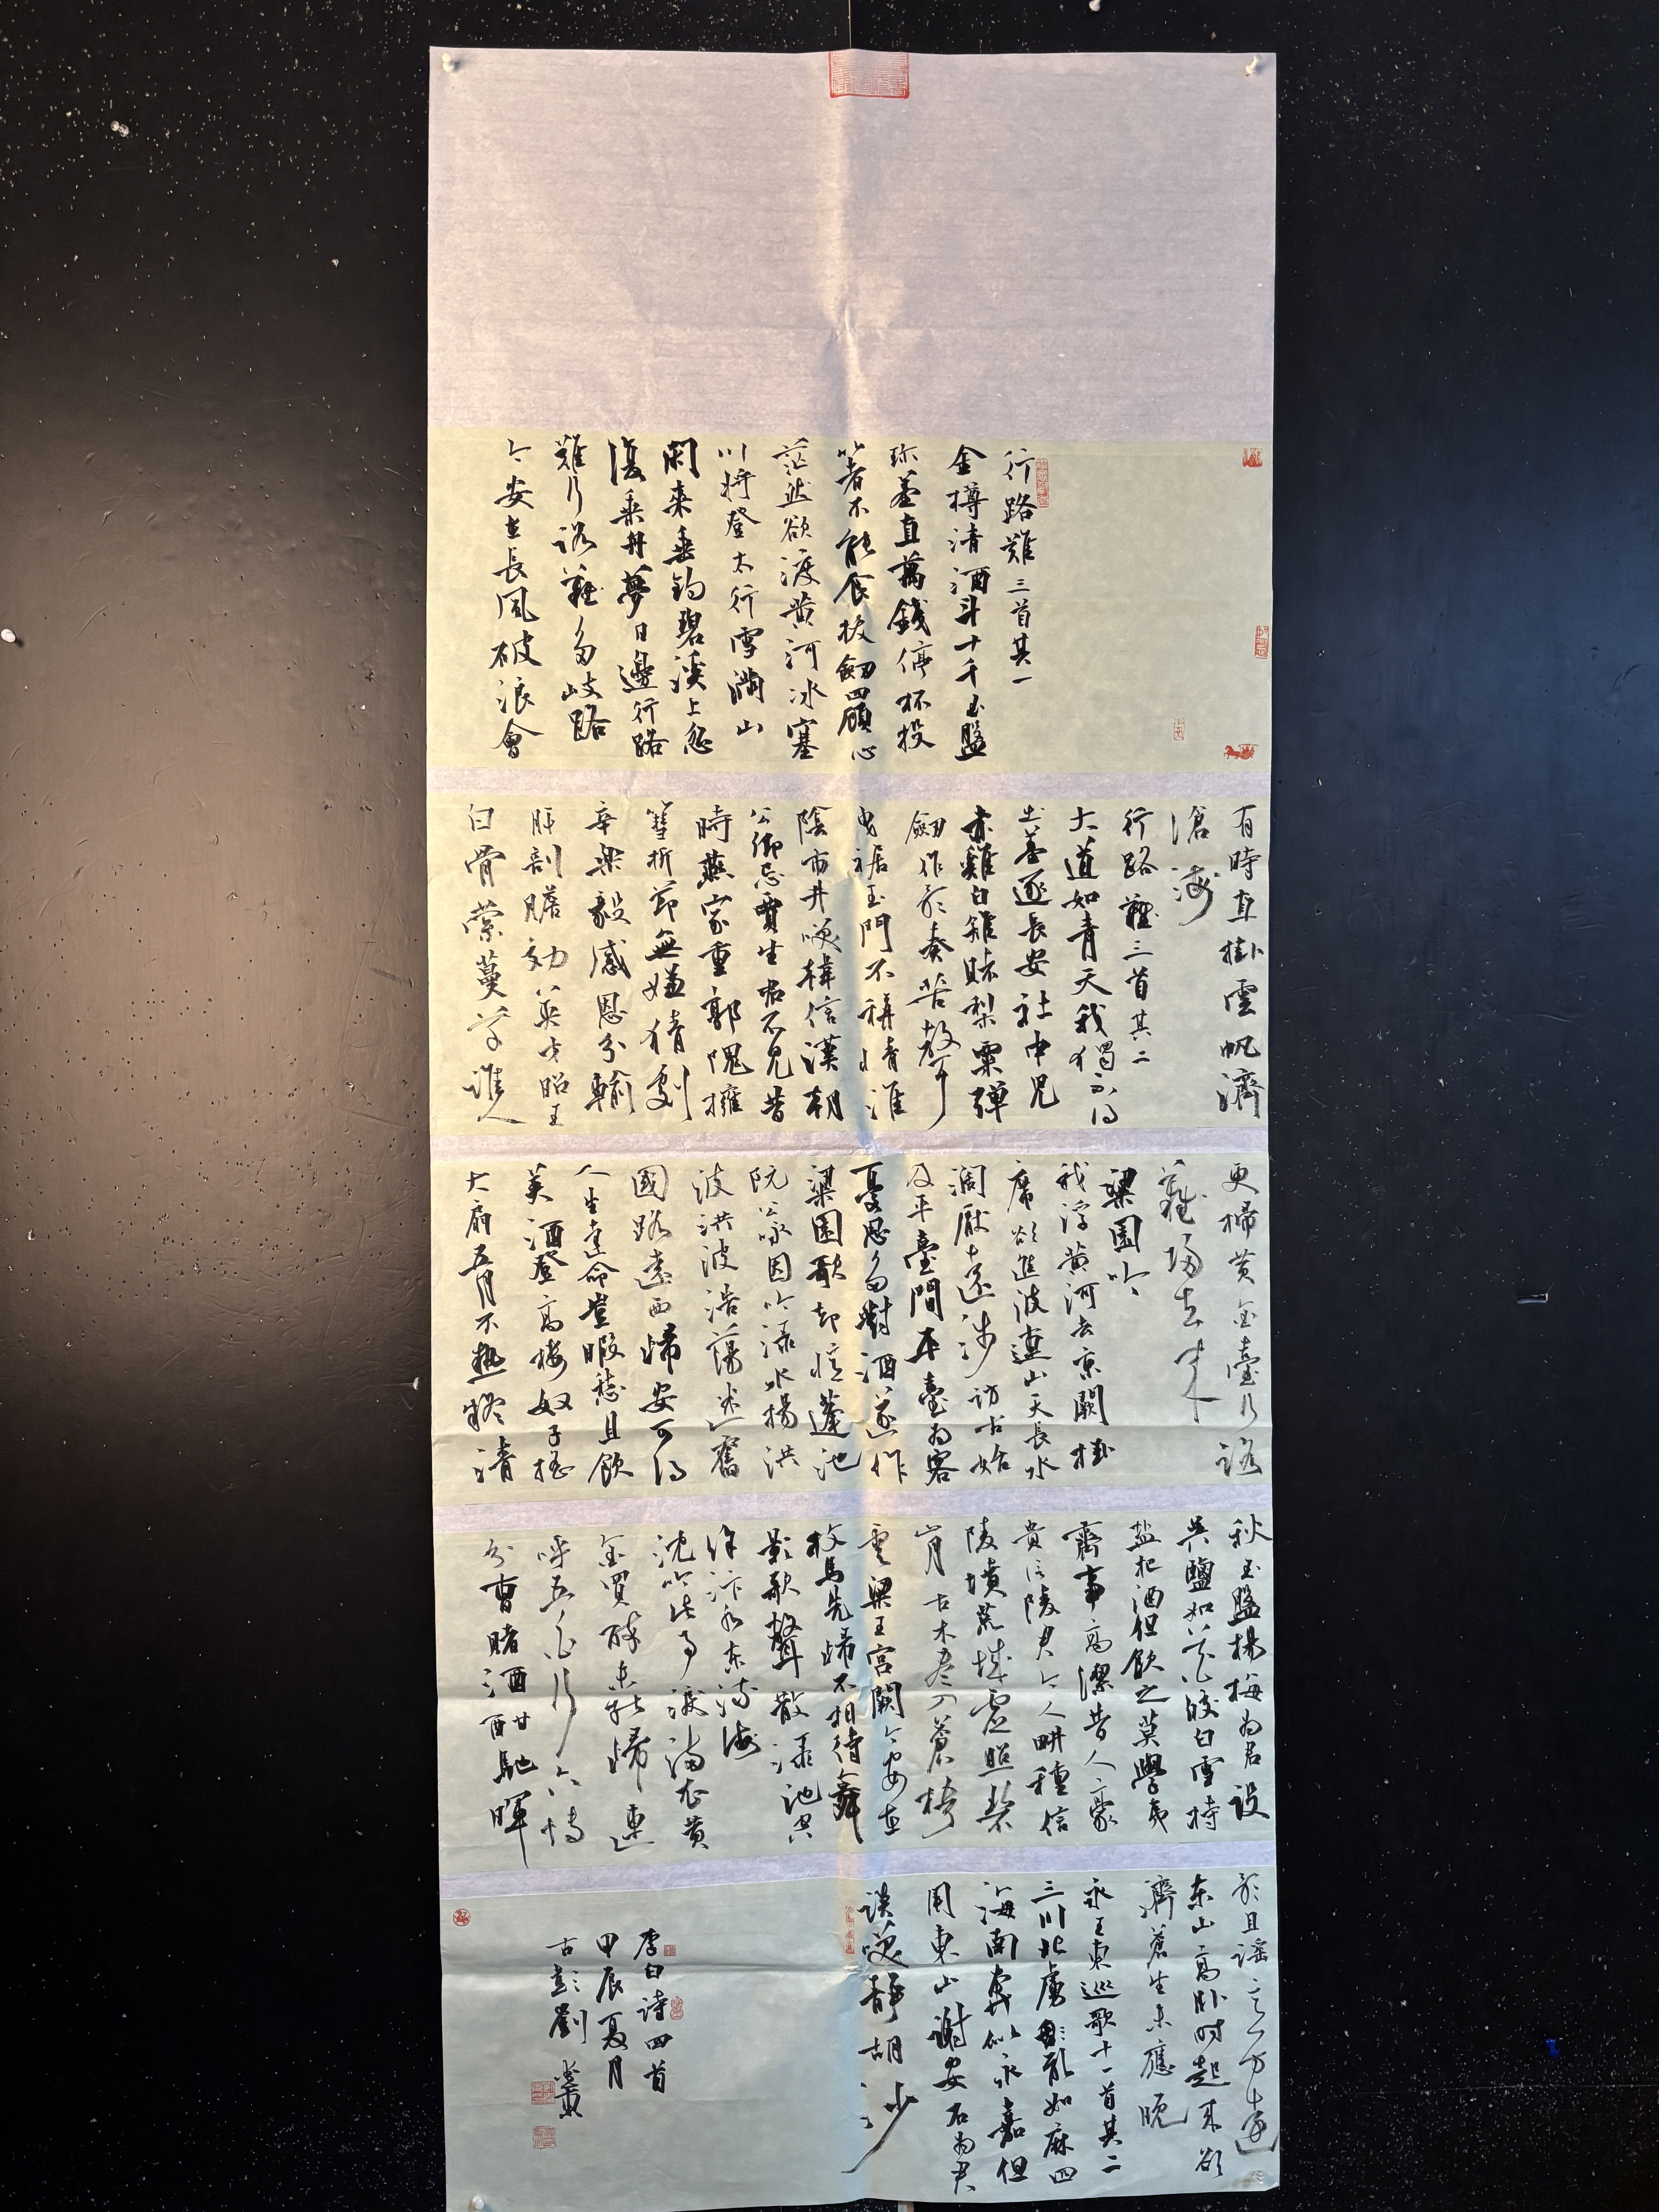 行路難三首其一
金樽清酒斗十千玉盤
珎羞直萬錢停杯投
箸不能食拔劒四顧心
茫然欲渡黄河冰塞
川将登太行雪滿山
閑来垂釣碧溪上忽
復乘舟夢日邊行路
難行路難多岐路
今安在長風破浪會
有時直掛雲帆濟
滄海
行路難三首其二
大道如青天我獨不得
出羞逐長安社中兒
赤雞白雉賭梨栗彈
劒作歌奏苦聲
曳裾王門不稱情淮
陰市井笑韓信漢朝
公卿忌賈生君不見昔
時燕家重郭隗擁
篲折節無嫌猜劇
辛樂毅感恩分輸
肝剖膽効英才昭王
白骨縈蔓草誰人
更掃黄金臺行路
難歸去来
梁園吟
我浮黄河去京闕掛
席欲進波連山天長水
闊厭遠涉訪古始
及平臺間平臺為客
憂思多對酒遂作
梁園歌却憶蓬池
阮公詠因吟渌水揚洪
波洪波浩蕩迷舊
國路遠西歸安可得
人生達命豈暇愁且飲
美酒登高樓奴子摇
大扇五月不熱疑清
秋玉盤楊梅為君設
吳鹽如花皎白雪持
盐把酒但飲之莫學夷
齊事高潔昔人豪
貴信陵君今人畊種信
陵墳荒城虚照碧
山月古木盡入蒼梧
雲梁王宫闕今安在
枚馬先歸不相待舞
影歌聲散渌池空
餘汴水東流海
沈吟此事淚满衣黄
金買醉未能歸連
呼五白行六博
分曹賭酒酣馳暉
歌且謡意方遠
東山高卧时起来欲
濟蒼生未應晚
永王東巡歌十一首其二
三川北虜亂如麻四
海南奔似永嘉但
用東山謝安石為君
談笑静胡沙
李白詩四首
甲辰夏月
古彭劉